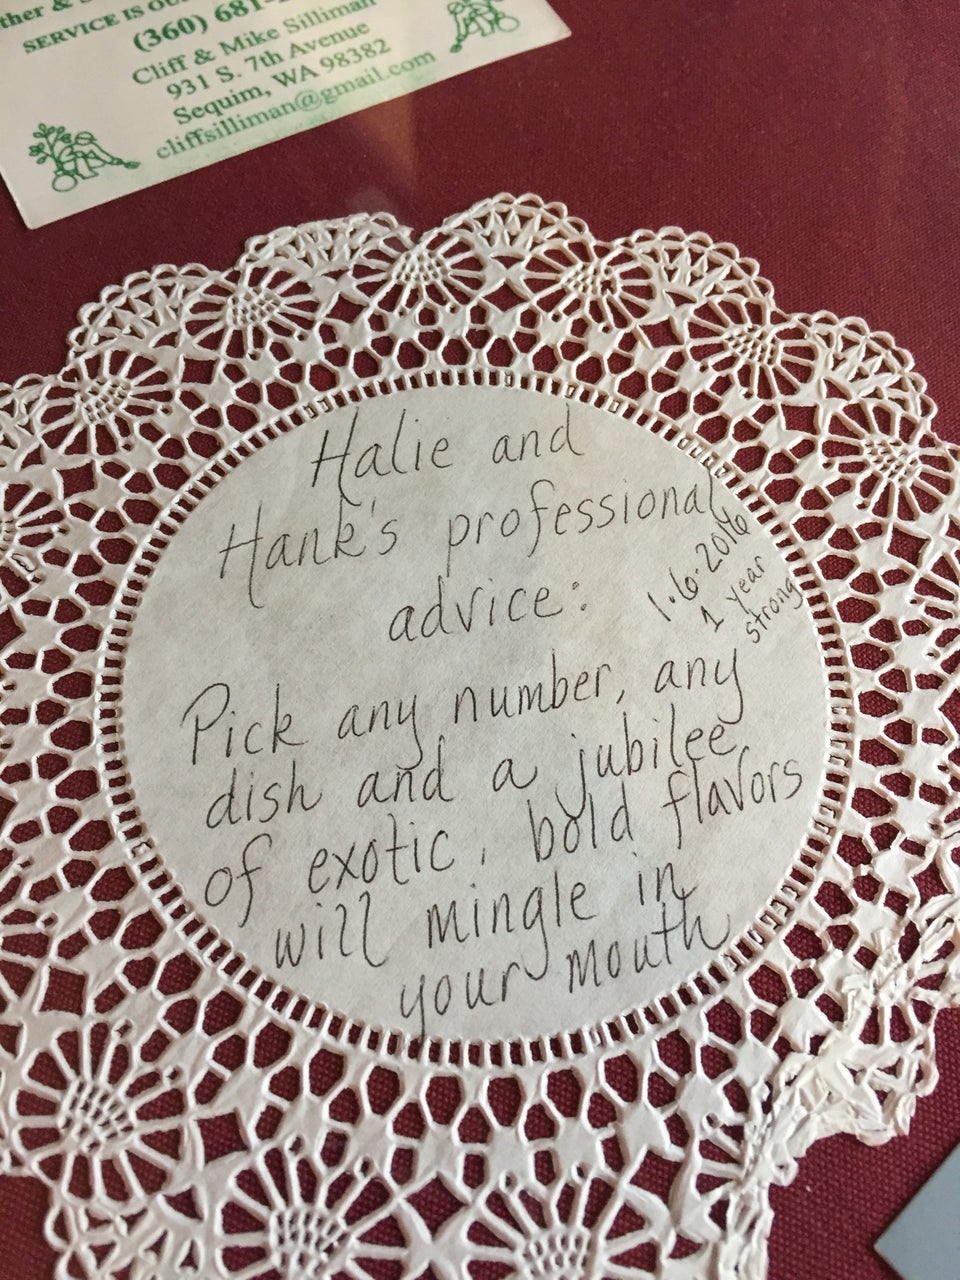 SERVICE IS
(360) 681-
Cliff & Mike Silliman
931 S. 7th Avenue
Sequim, WA 98382
cliffsilliman@gmail.com
Halie and
Hank's professional
advice:
1.6.2016
1 year
strong
Pick any number, any
dish and a jubilee
of exotic, bold flavors
will mingle in
your mouth